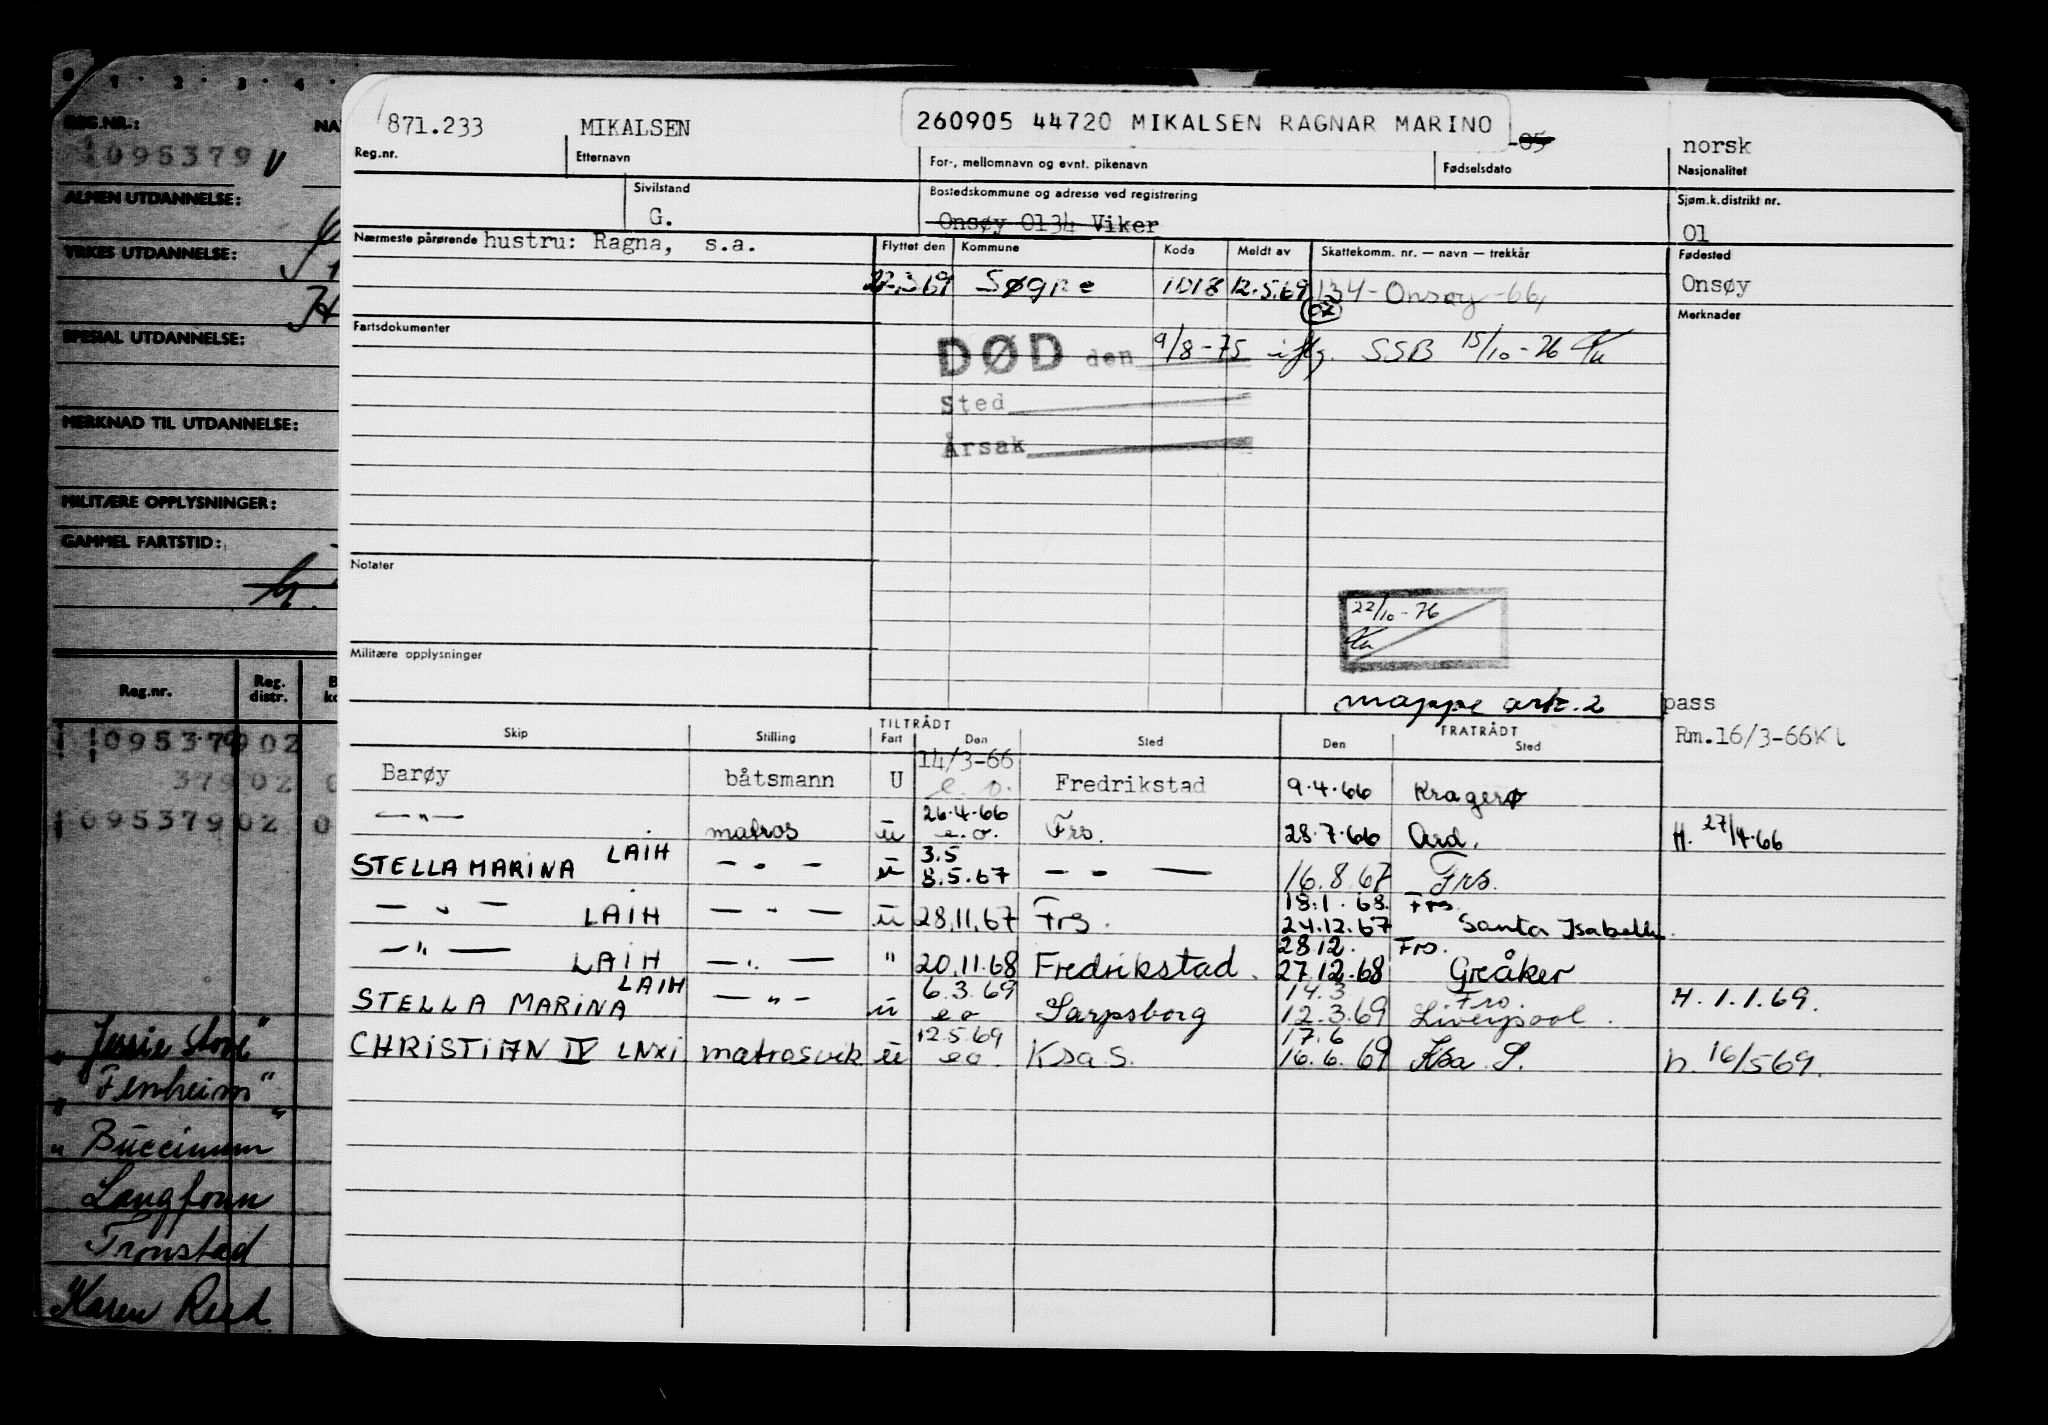 0 1 2 3 4
REG.NR.: NA
1095379 V
ALMEN UTDANNELSE:
YRKES UTDANNELSE:
SPESIAL UTDANNELSE:
MERKNAD TIL UTDANNELSE:
MILITÆRE OPPLYSNINGER:
GAMMEL FARTSTID:
Reg.nr. Reg. distr.
1095379 02
379 02 0
1095379 02 0
" Jessie Stove"
" Fenheim"
" Buccinum"
Langfonn
Tronstad
Karen Reed
871.233 MIKALSEN 260905 44720 MIKALSEN RAGNAR MARINO -05 norsk
Reg.nr. Etternavn For-, mellomnavn og evnt. pikenavn Fødselsdato Nasjonalitet
Sivilstand Bostedskommune og adresse ved registrering Sjøm.k.distrikt nr.
G. Onsøy 0134 Viker 01
Nærmeste pårørende hustru: Ragna, s.a. Flyttet den Kommune Kode Meldt av Skattekomm. nr. — navn — trekkår Fødested
22.3.69 Søgne 1018 12.5.69 134-Onsøy-66, Onsøy
02
Merknader
Fartsdokumenter
DØD den 9/8-75 iflg. SSB 15/10-76
Sted
Årsak
Notater
22/10-76
Militære opplysninger
mappe ark. 2 pass
TILTRÅDT FRATRÅDT
Skip Stilling Fart Den Sted Den Sted Rm.16/3-66Kl
14/3-66
Barøy båtsmann U e.o. Fredrikstad 9.4.66 Kragerø
26.4.66
—"— matros u e.o. Frs. 28.7.66 Ard. H. 27/4.66
3.5
STELLA MARINA LAIH —"— u 8.5.67 —"— 16.8.67 Frs.
18.1.68. Frs.
—"— LAIH —"— u 28.11.67 Frs. 24.12.67 Santa Isabella.
28.12. Frs.
—"— LAIH —"— " 20.11.68 Fredrikstad. 27.12.68 Greåker
6.3.69 14.3 Frs.
STELLA MARINA LAIH —"— u eo Sarpsborg 12.3.69 Liverpool. H. 1.1.69.
12.5.69 17.6
CHRISTIAN IV LNXI matrosvik u eo. Ksa S. 16.6.69 Ksa S. h. 16/5 69.